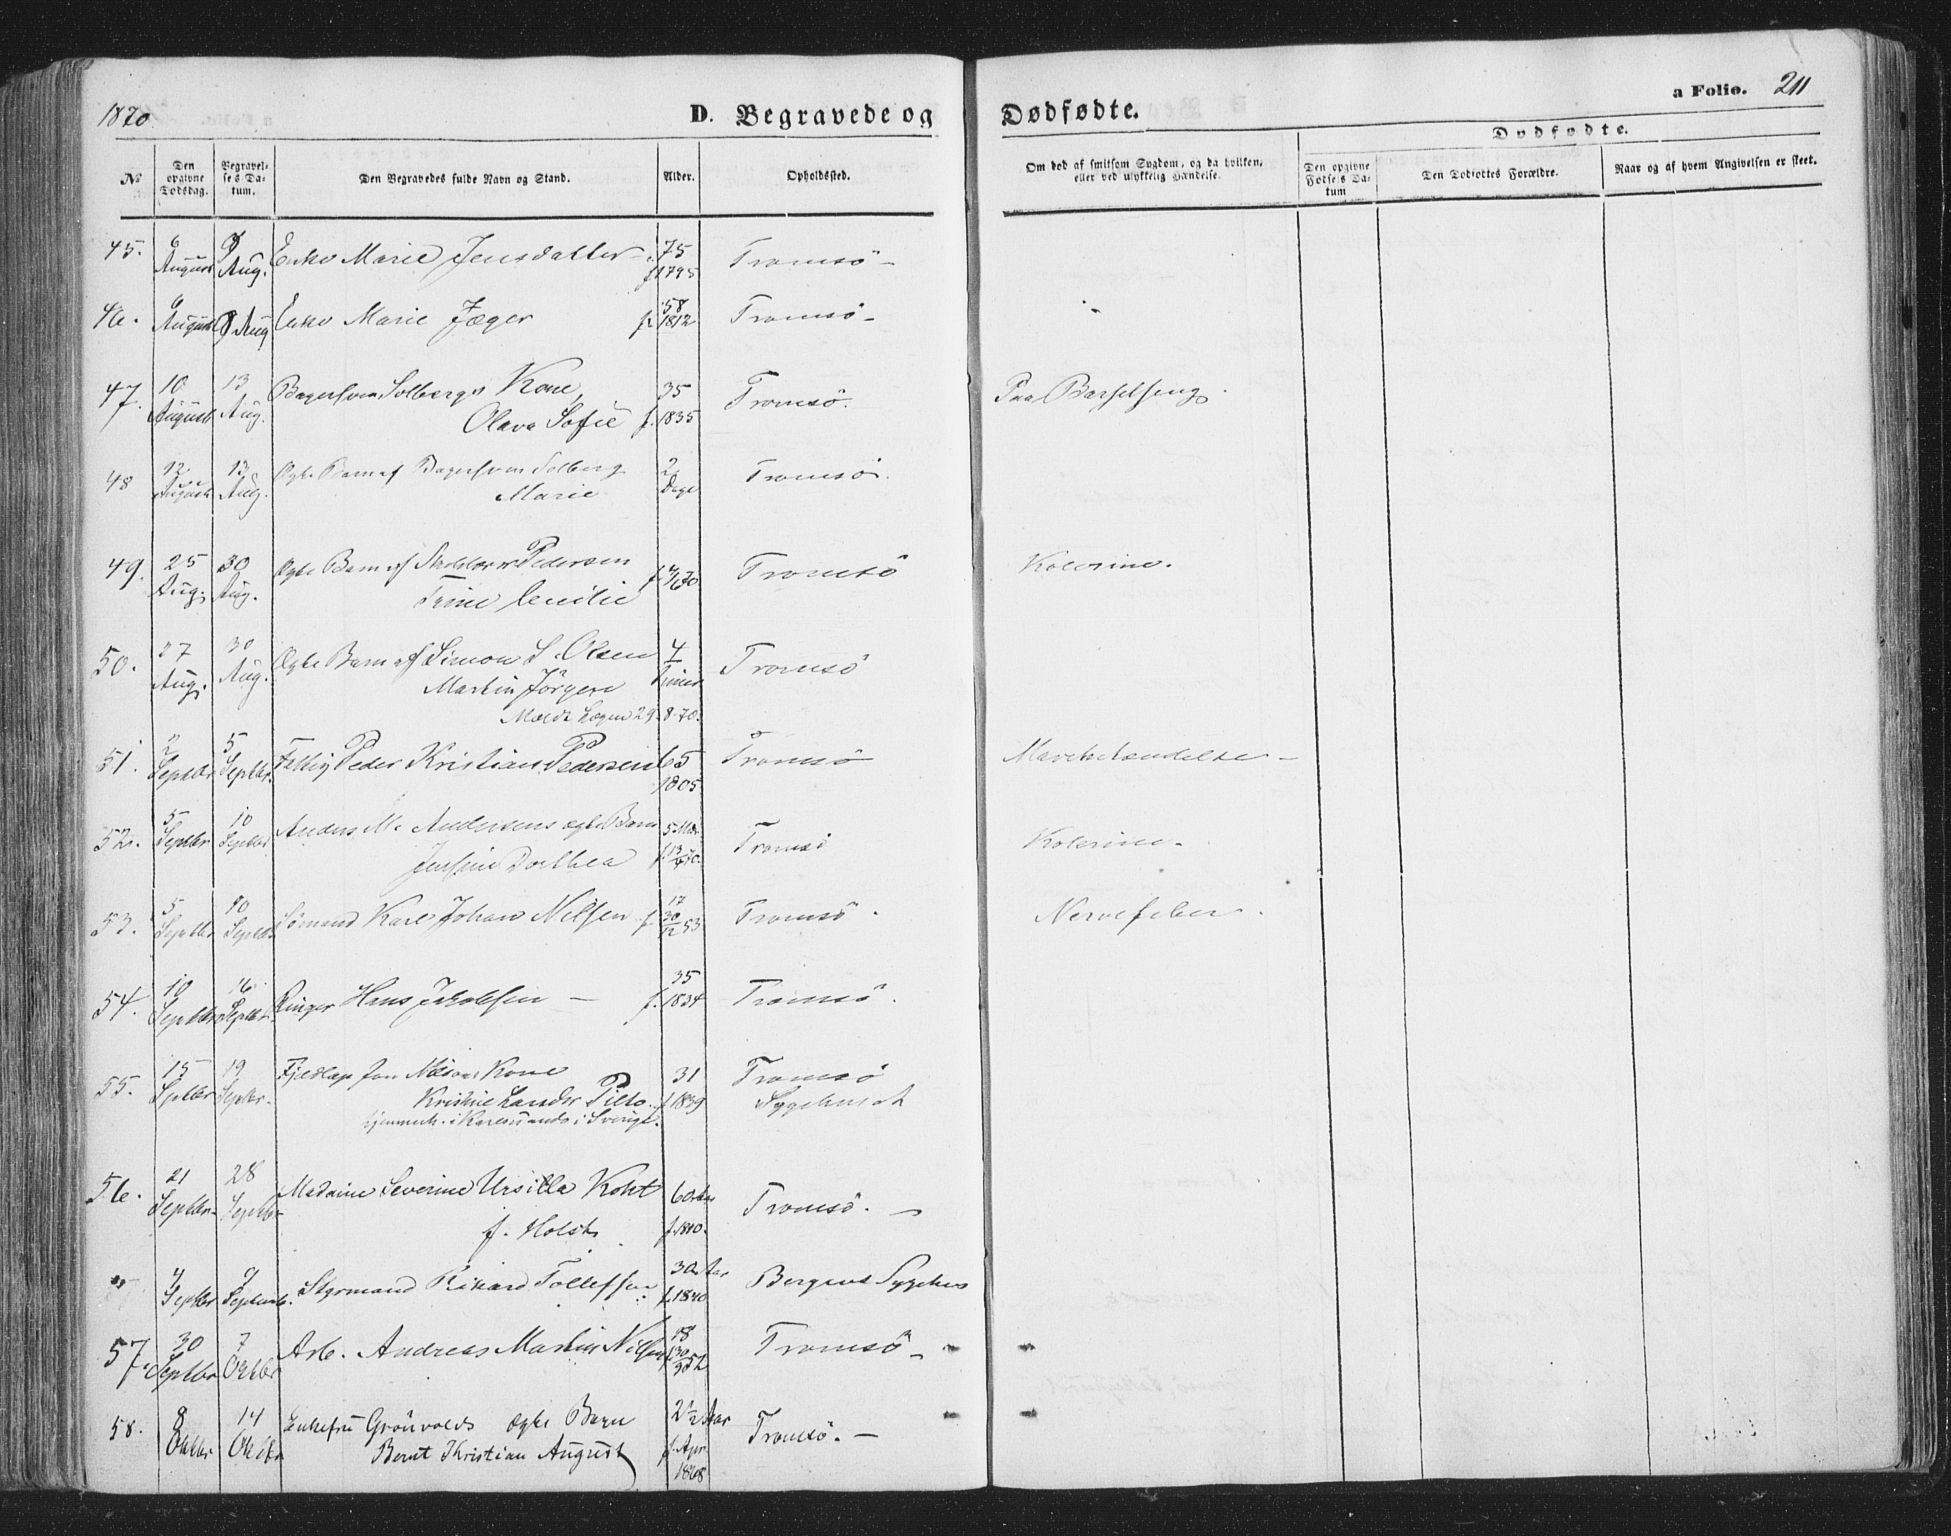 1870
D. Begravede og Dødfødte.
a Folio. 211
Dødfødte.
No
Den opgivne Dødsdag.
Begravelses Datum.
Den Begravedes fulde Navn og Stand.
Alder.
Opholdssted.
Om død af smitsom Sygdom, og da hvilken, eller ved ulykkelig Hændelse.
Den opgivne Fødsels Datum
Den Dødfødtes Forældre.
Naar og af hvem Angivelsen er skeet.
45. 6 August 9 Aug. Enke Marie Jensdatter 75 Tromsö
f. 1795
46. 6 August 9 Aug Enke Marie Jæger 58 Tromsö
f. 1812
47. 10 August 13 Aug. Bagersvend Solbergs Kone, 35 Tromsö. Paa Barselseng.
Olava Sofie f. 1835
48 12 August 13 Aug. Ægte Barn af Bagersvend Solberg 2 Dage Tromsö.
Marie
49. 25 Aug. 30 Aug. Ægte Barn af Pedersen Tromsö Kolerine.
Trine Cecilie
50. 27 Aug. 30 Aug. Ægte Barn af Simon S. Olsen 4 Timer Tromsö
Martin Jörgen
29-8-70.
51. 2 Septbr 5 Septbr. Fattig Peder Kristian Pedersen 65 Tromsö
1805
52. 5 Septbr 10 Septbr Anders M. Andersens ægte Barn 5 Mdr Tromsö Kolerine.
Jensine Dorthea
53. 5 Septbr 10 Septbr Sömand Karl Johan Nilsen f. 17 30/12 53 Tromsö. Nervefeber.
54. 10 Septbr 16 Septbr. Ringer Hans Jakobsen 35 Tromsö.
f. 1834
55. 15 Septbr 19 Septbr. Fjeldlap Jon Nilsens Kone 31 Tromsö
Kristine Larsdr Pilto. f. 1839 Sygehuset
hjemmeh. i Karesuando i Sverige.
56. 21 Septbr 28 Septbr Madame Severine Ursilla Koht 60 Aar Tromsö.
f. Holst f. 1810.
4 Septbr 7 Septemb. Styrmand Rikard Tollefsen 30 Aar Bergens Sygehus
f. 1840
57. 30 Septbr 7 Oktbr Arb. Andreas Martin Nilsen 18 Tromsö
58. 8 Oktbr 14 Oktbr Enkefru Grönvolds ægte Barn 2 1/2 Aar Tromsö.
Bernt Kristian August f. Apr. 1868